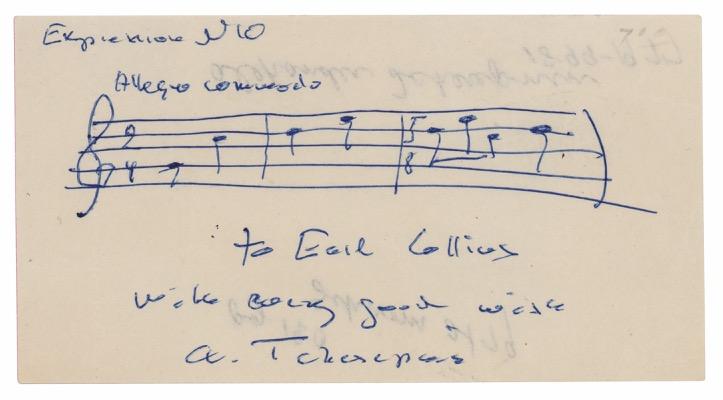 Expression N10
Allegro commodo
2 4 5 8
to Earl Collins
with every good wish
A. Tcherepnin